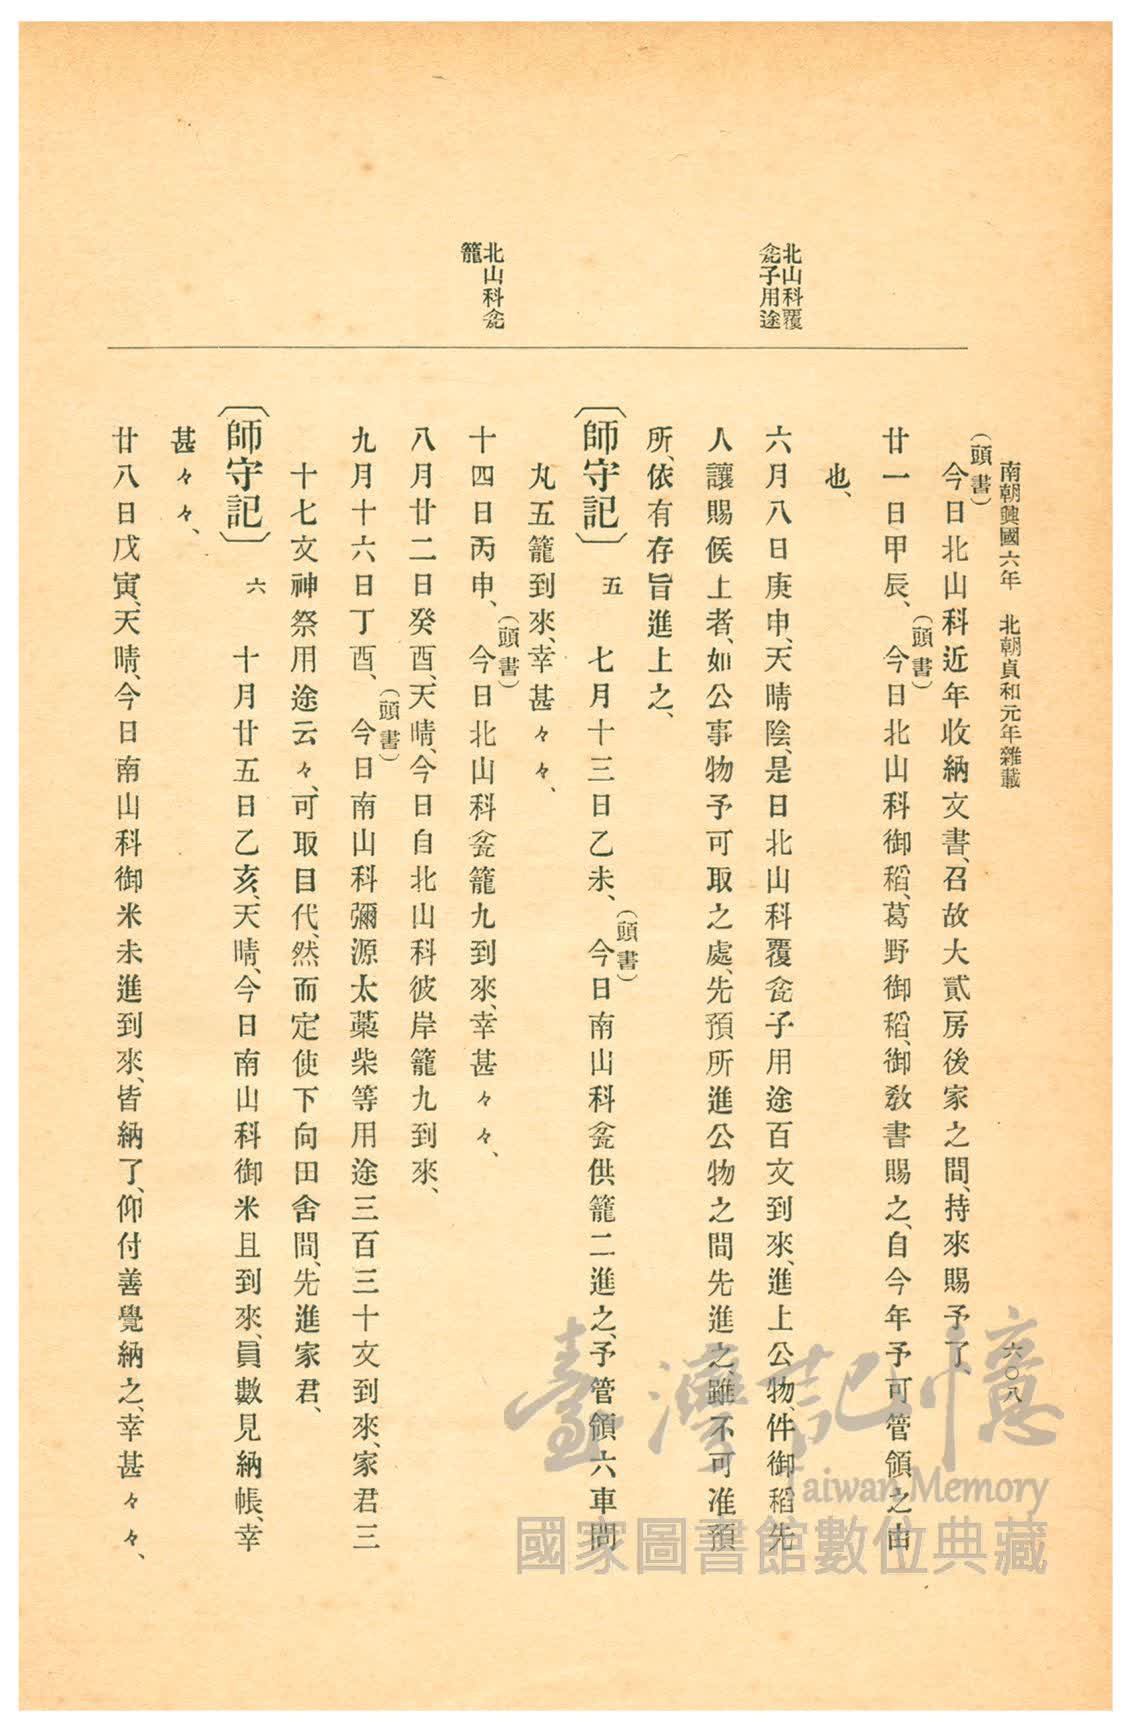 南朝興國六年　北朝貞和元年雜載
六〇八
北山科覆
瓮子用途
北山科瓮
籠
(頭書)
今日北山科近年收納文書、召故大貳房後家之間、持來賜予了、
廿一日甲辰、(頭書)今日北山科御稻、葛野御稻、御敎書賜之、自今年予可管領之由
也、
六月八日庚申、天晴陰、是日北山科覆瓮子用途百文到來、進上公物、件御稻先
人讓賜候上者、如公事物予可取之處、先預所進公物之間先進之、雖不可准預
所、依有存旨進上之、
〔師守記〕　五　七月十三日乙未、(頭書)今日南山科瓮供籠二進之、予管領六車間
丸五籠到來、幸甚々々、
十四日丙申、(頭書)今日北山科瓮籠九到來、幸甚々々、
八月廿二日癸酉、天晴、今日自北山科彼岸籠九到來、
九月十六日丁酉、(頭書)今日南山科彌源太藁柴等用途三百三十文到來、家君三
十七文神祭用途云々、可取目代、然而定使下向田舍間、先進家君、
〔師守記〕　六　十月廿五日乙亥、天晴、今日南山科御米且到來、員數見納帳、幸
甚々々、
廿八日戊寅、天晴、今日南山科御米未進到來、皆納了、仰付善覺納之、幸甚々々、
臺灣記憶
Taiwan Memory
國家圖書館數位典藏